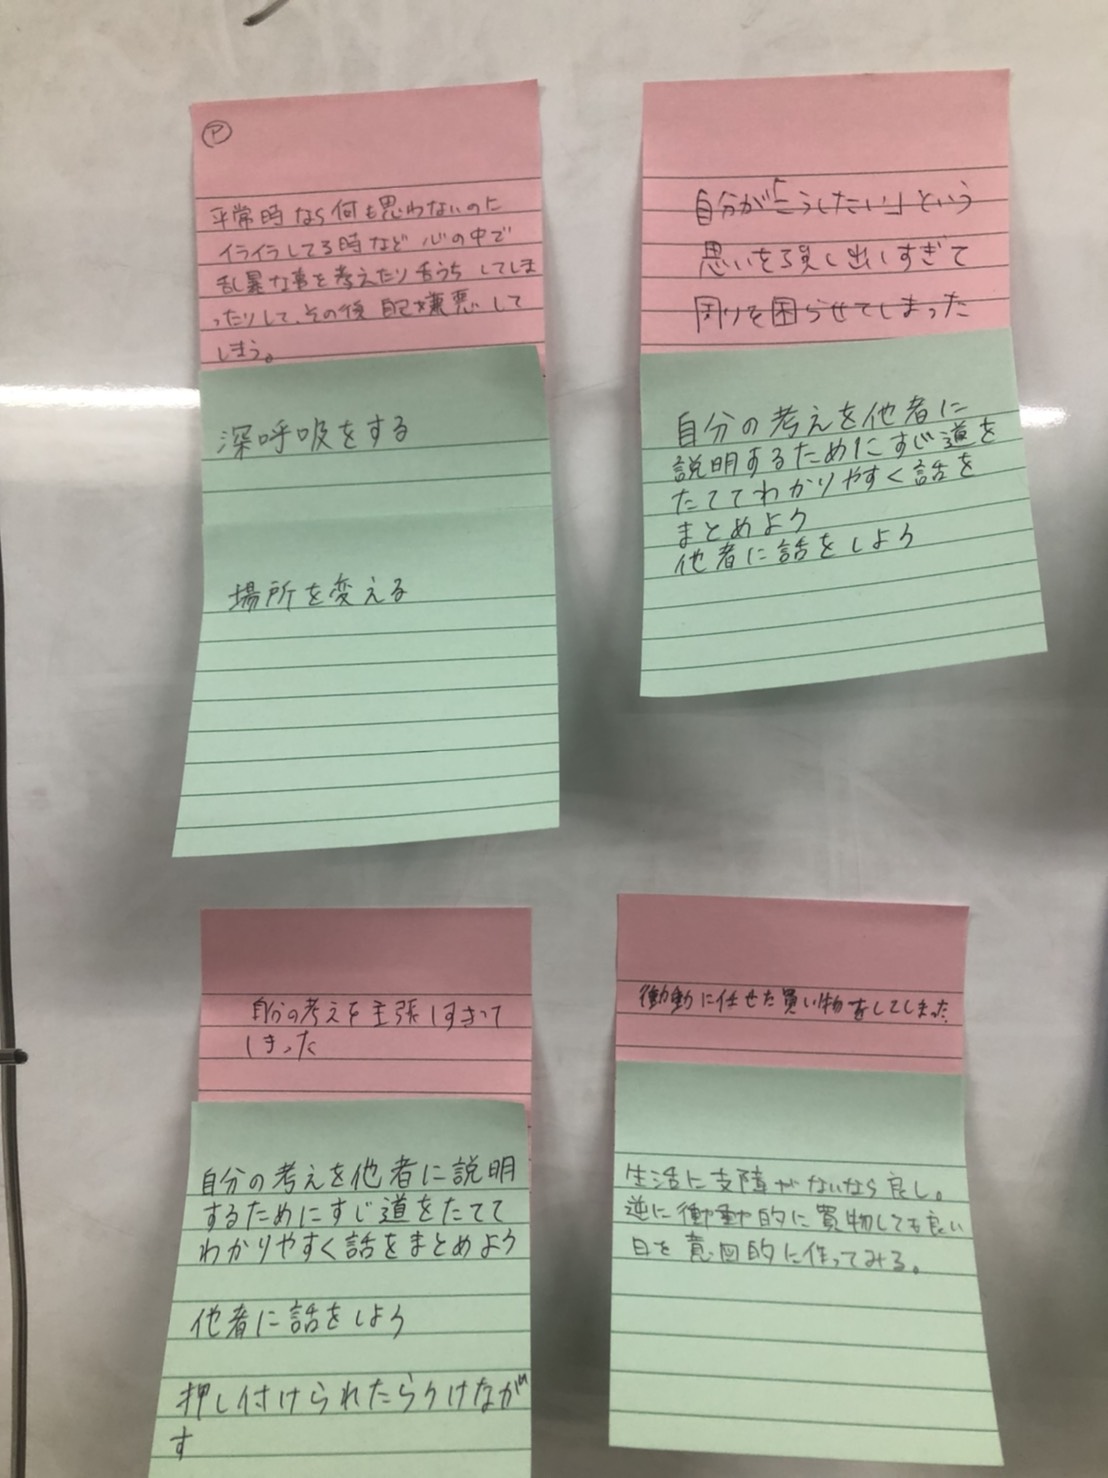 ア
平常時なら何も思わないのに
イライラしてる時など心の中で
乱暴な事を考えたり舌うちしてしま
ったりして、その後自己嫌悪して
しまう。
深呼吸をする
場所を変える
自分が「こうしたい」という
思いを強く出しすぎて
周りを困らせてしまった
自分の考えを他者に
説明するためにすじ道を
たててわかりやすく話を
まとめよう
他者に話をしよう
自分の考えを主張しすぎて
しまった
自分の考えを他者に説明
するためにすじ道をたてて
わかりやすく話をまとめよう
他者に話をしよう
押し付けられたらうけなが
す
衝動に任せた買い物をしてしまった
生活に支障がないなら良し。
逆に衝動的に買物しても良い
日を意図的に作ってみる。